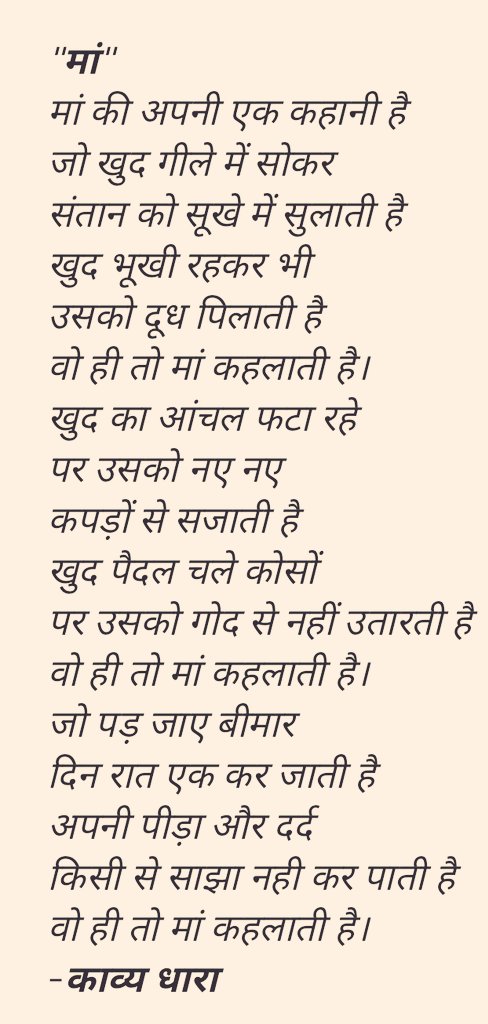 "मां"
मां की अपनी एक कहानी है
जो खुद गीले में सोकर
संतान को सूखे में सुलाती है
खुद भूखी रहकर भी
उसको दूध पिलाती है
वो ही तो मां कहलाती है।
खुद का आंचल फटा रहे
पर उसको नए नए
कपड़ों से सजाती है
खुद पैदल चले कोसों
पर उसको गोद से नहीं उतारती है
वो ही तो मां कहलाती है।
जो पड़ जाए बीमार
दिन रात एक कर जाती है
अपनी पीड़ा और दर्द
किसी से साझा नही कर पाती है
वो ही तो मां कहलाती है।
-काव्य धारा